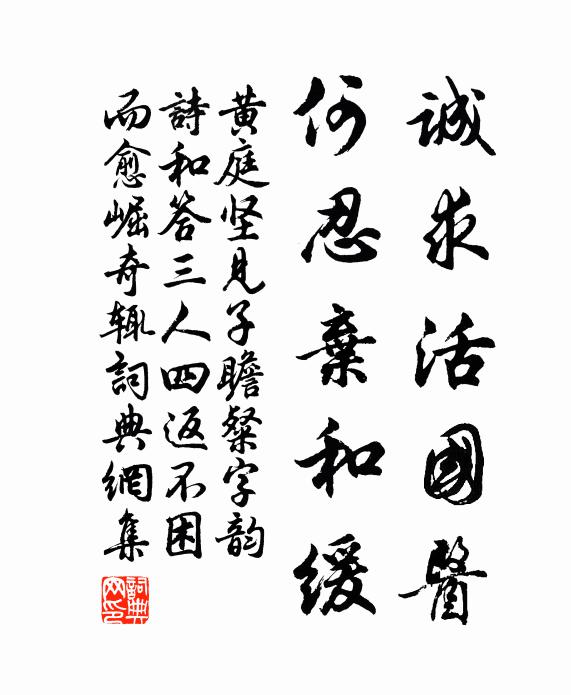 誠求活國醫
何忍棄和緩
黄庭坚見子瞻粲字韵
詩和答三人四返不困
而愈崛奇辄詞典網集
詞典网印